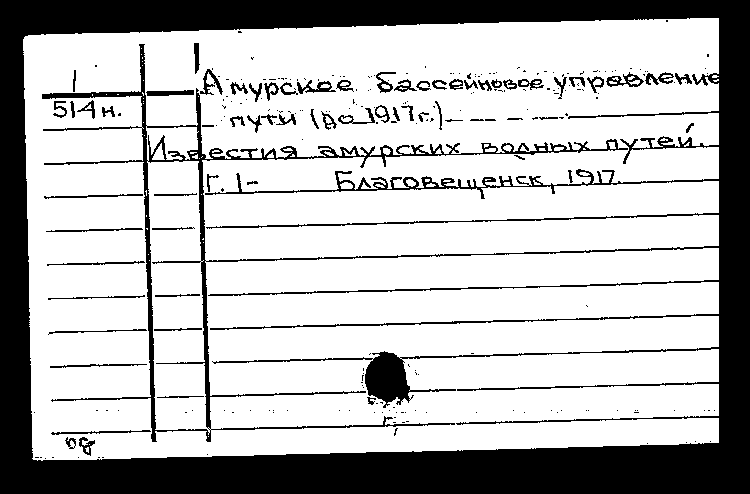 1
514н.
Амурское бассейновое управление
пути (до 1917г.)— — — —
Известия амурских водных путей.
Г. 1- Благовещенск, 1917.